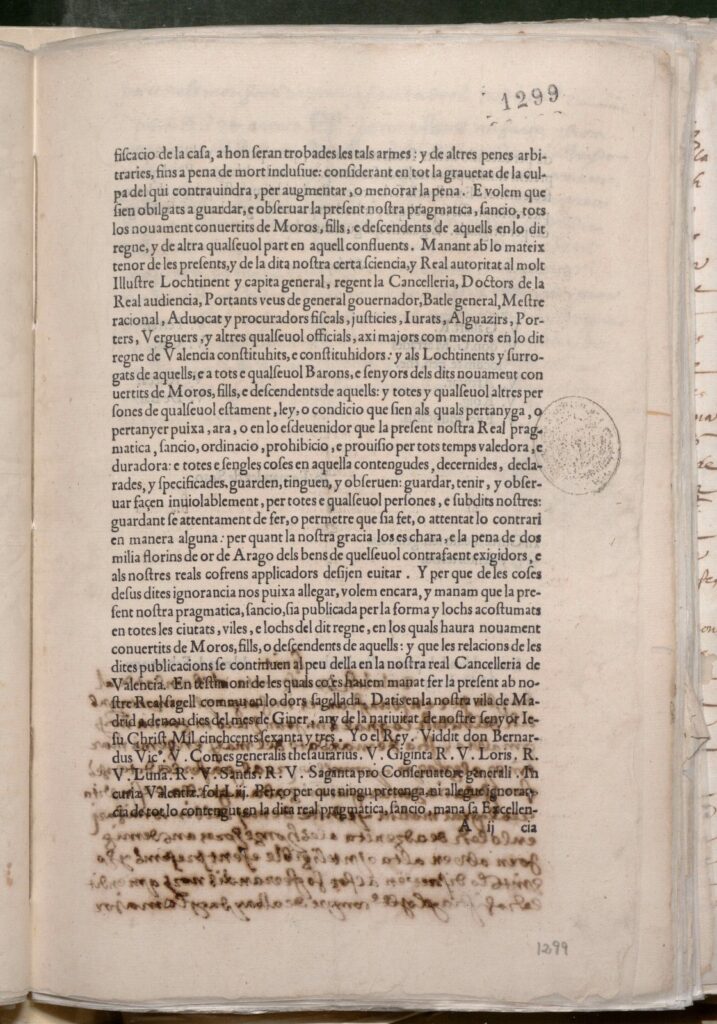 1299
fiscacio de la casa, a hon seran trobades les tals armes: y de altres penes arbi-
traries, fins a pena de mort inclusiue: considerant en tot la grauetat de la cul-
pa del qui contrauindra, per augmentar, o menorar la pena. E volem que
sien obilgats a guardar, e obseruar la present nostra pragmatica, sancio, tots
los nouament conuertits de Moros, fills, e descendents de aquells en lo dit
regne, y de altra qualseuol part en aquell confluents. Manant ab lo mateix
tenor de les presents, y de la dita nostra certa sciencia, y Real autoritat al molt
Illustre Lochtinent y capita general, regent la Cancelleria, Doctors de la
Real audiencia, Portants veus de general gouernador, Batle general, Mestre
racional, Aduocat y procuradors fiscals, justicies, Iurats, Alguazirs, Por-
ters, Verguers, y altres qualseuol officials, axi majors com menors en lo dit
regne de Valencia constituhits, e constituhidors: y als Lochtinents y surro-
gats de aquells, e a tots e qualseuol Barons, e senyors dels dits nouament con
uertits de Moros, fills, e descendents de aquells: y totes y qualseuol altres per
sones de qualseuol estament, ley, o condicio que sien als quals pertanyga, o
pertanyer puixa, ara, o en lo esdeuenidor que la present nostra Real prag-
matica, sancio, ordinacio, prohibicio, e prouisio per tots temps valedora, e
duradora: e totes e sengles coses en aquella contengudes, decernides, decla-
rades, y specificades. guarden, tinguen, y obseruen: guardar, tenir, y obser-
uar façen inuiolablement, per totes e qualseuol persones, e subdits nostres:
guardant se attentament de fer, o permetre que sia fet, o attentat lo contrari
en manera alguna: per quant la nostra gracia los es chara, e la pena de dos
milia florins de or de Arago dels bens de quelseuol contrafaent exigidors, e
als nostres reals cofrens applicadors desijen euitar. Y per que de les coses
desus dites ignorancia nos puixa allegar, volem encara, y manam que la pre-
sent nostra pragmatica, sancio, sia publicada per la forma y lochs acostumats
en totes les ciutats, viles, e lochs del dit regne, en los quals haura nouament
conuertits de Moros, fills, o descendents de aquells: y que les relacions de les
dites publicacions se continuen al peu della en la nostra real Cancelleria de
Valencia. En testimoni de les quals coses hauem manat fer la present ab no-
stre Real sagell commu en lo dors sagellada. Datis en la nostra vila de Ma-
drid a denou dies del mes de Giner, any de la natiuitat de nostre senyor Ie-
su Christ, Mil cinchcents sexanta y tres. Yo el Rey. Viddit don Bernar-
dus Vicˢ. V. Comes generalis thesaurarius. V. Giginta R. V. Loris. R.
V. Luna. R. V. Santis. R. V. Saganta pro Conseruatore generali. In
curia Valentiæ. fol. Liij. Perço per que ningu pretenga, ni allegue ignoran-
cia de tot lo contengut en la dita real pragmatica, sancio, mana sa Excellen-
A ij cia
1299